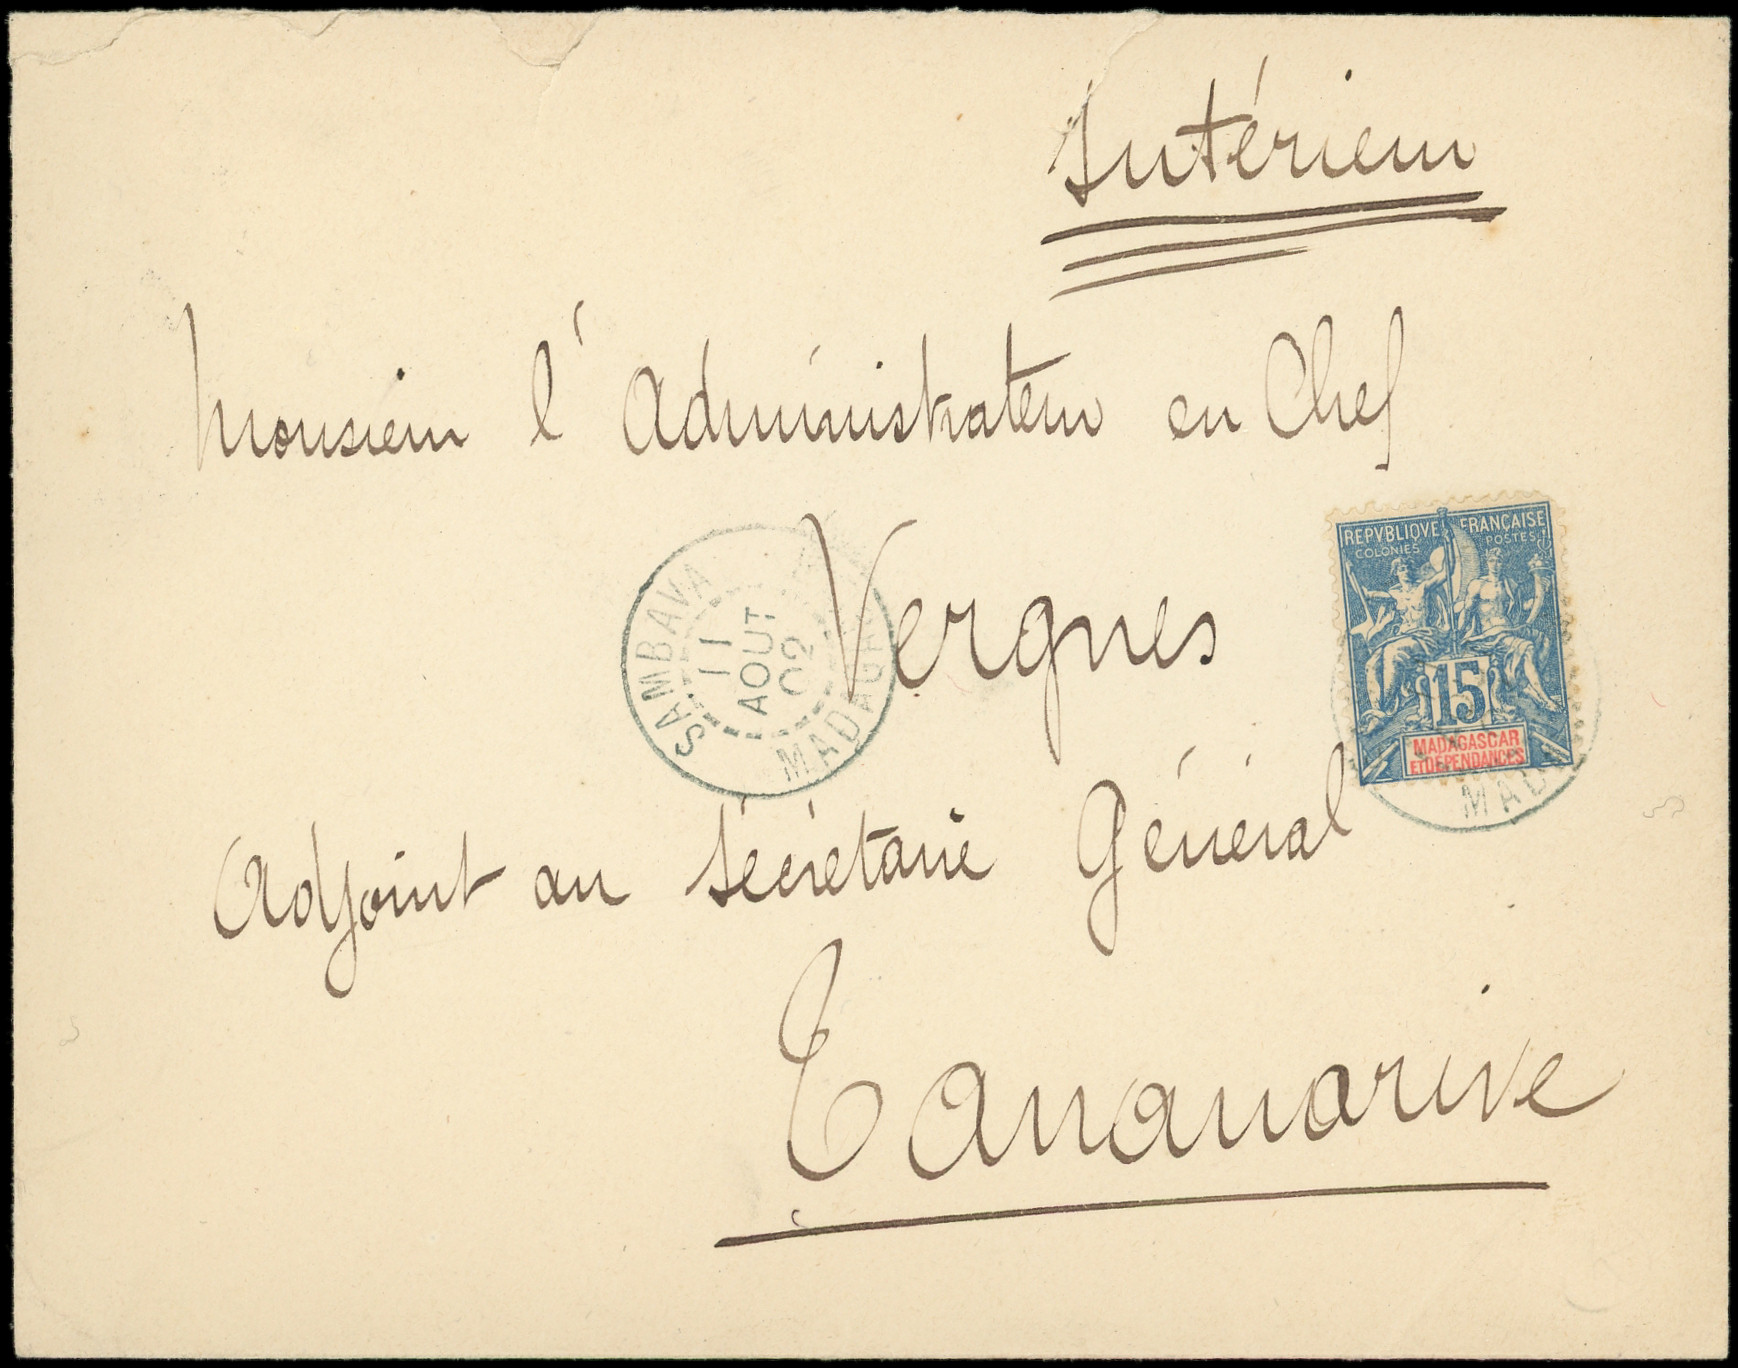 Intérieur
Monsieur l'Administrateur en Chef
Vergnes
Adjoint au Sécrétaire Général
Tananarive
SAMBAVA
11
AOUT
02
REPVBLIQVE FRANÇAISE
COLONIES POSTES
15
MADAGASCAR
ET DÉPENDANCES
MAD